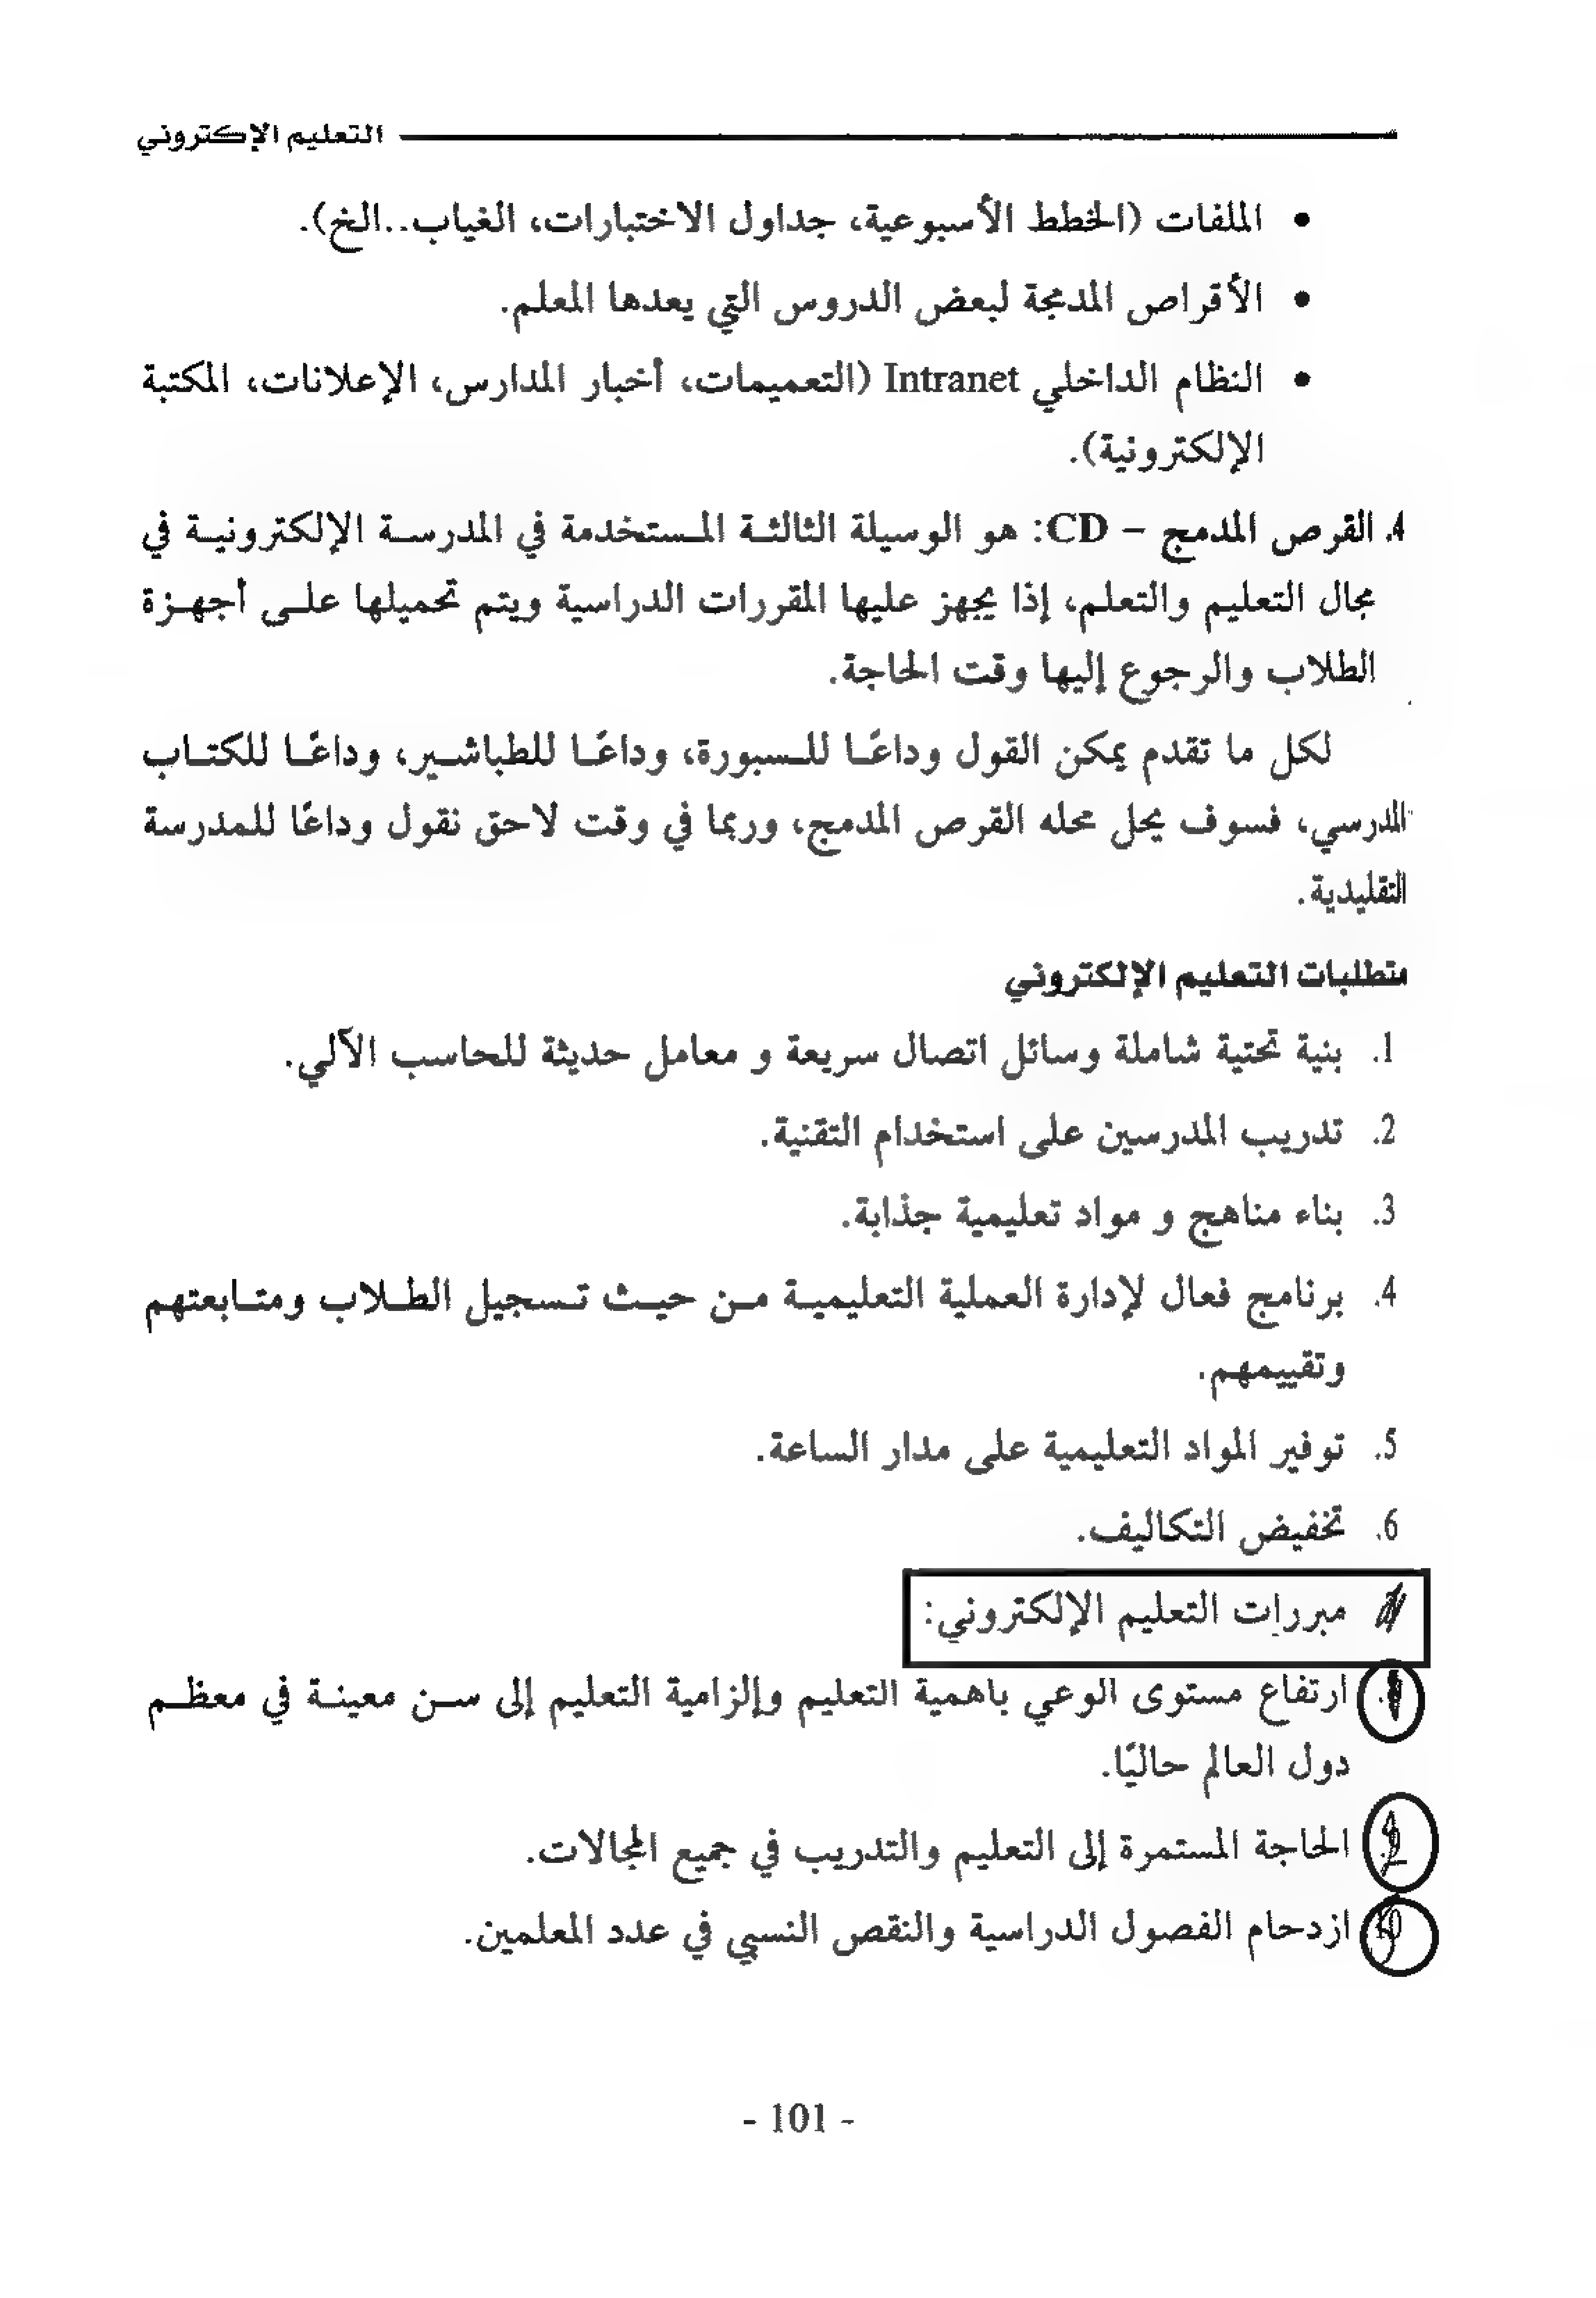 التعليم الإكتروني
• الملفات (الخطط الأسبوعية، جداول الاختبارات، الغياب..الخ).
• الأقراص المدمجة لبعض الدروس التي يعدها المعلم.
• النظام الداخلي Intranet (التعميمات، أخبار المدارس، الإعلانات، المكتبة
الإلكترونية).
4. القرص المدمج – CD: هو الوسيلة الثالثة المستخدمة في المدرسة الإلكترونية في
مجال التعليم والتعلم، إذا يجهز عليها المقررات الدراسية ويتم تحميلها على أجهزة
الطلاب والرجوع إليها وقت الحاجة.
لكل ما تقدم يمكن القول وداعًا للسبورة، وداعًا للطباشير، وداعًا للكتاب
المدرسي، فسوف يحل محله القرص المدمج، وربما في وقت لاحق نقول وداعًا للمدرسة
التقليدية.
متطلبات التعليم الإلكتروني
1. بنية تحتية شاملة وسائل اتصال سريعة و معامل حديثة للحاسب الآلي.
2. تدريب المدرسين على استخدام التقنية.
3. بناء مناهج و مواد تعليمية جذابة.
4. برنامج فعال لإدارة العملية التعليمية من حيث تسجيل الطلاب ومتابعتهم
وتقييمهم.
5. توفير المواد التعليمية على مدار الساعة.
6. تخفيض التكاليف.
مبررات التعليم الإلكتروني:
ارتفاع مستوى الوعي باهمية التعليم وإلزامية التعليم إلى سن معينة في معظم
دول العالم حاليًا.
الحاجة المستمرة إلى التعليم والتدريب في جميع المجالات.
10 ازدحام الفصول الدراسية والنقص النسبي في عدد المعلمين.
- 101 -